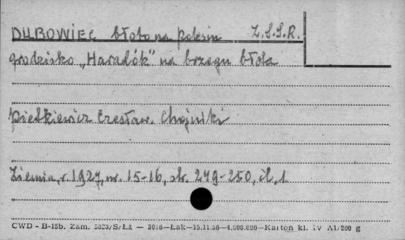 DUBOWIEC błoto na polesiu Z.S.S.R.
grodzisko „Haradók" na brzegu błota
Pietkiewicz Czesław. Chojniki
Ziemia, r. 1927, nr. 15-16, str. 249-250, il. 1
CWD - B-15b. Zam. 5023/S/Łż — 3016 — Łak — 15.11.50 — 4.000.000 — Karton kl. IV A1/200 g